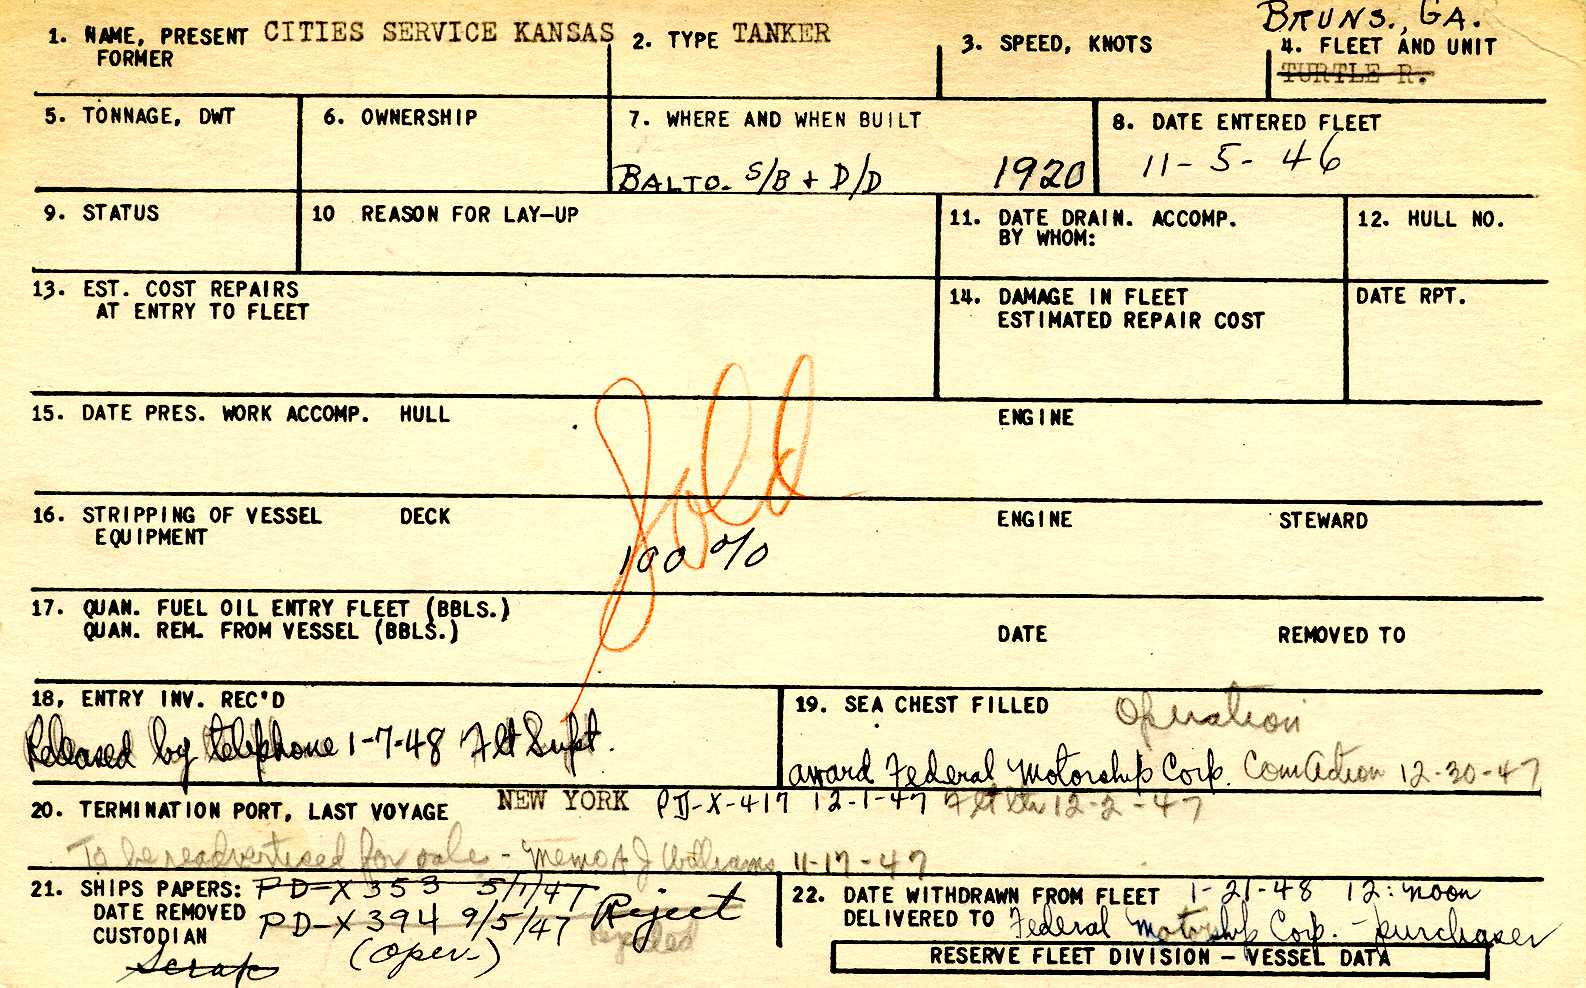 BRUNS., GA.
1. NAME, PRESENT CITIES SERVICE KANSAS 2. TYPE TANKER 3. SPEED, KNOTS 4. FLEET AND UNIT
FORMER TURTLE R.
5. TONNAGE, DWT 6. OWNERSHIP 7. WHERE AND WHEN BUILT 8. DATE ENTERED FLEET
BALTO. S/B + D/D 1920 11-5-46
9. STATUS 10 REASON FOR LAY-UP 11. DATE DRAIN. ACCOMP. 12. HULL NO.
BY WHOM:
13. EST. COST REPAIRS 14. DAMAGE IN FLEET DATE RPT.
AT ENTRY TO FLEET ESTIMATED REPAIR COST
15. DATE PRES. WORK ACCOMP. HULL ENGINE
Sold
16. STRIPPING OF VESSEL DECK ENGINE STEWARD
EQUIPMENT 100%
17. QUAN. FUEL OIL ENTRY FLEET (BBLS.)
QUAN. REM. FROM VESSEL (BBLS.) DATE REMOVED TO
18, ENTRY INV. REC'D 19. SEA CHEST FILLED Operation
Released by telephone 1-7-48 Flt Supt. award Federal Motorship Corp. Com Action 12-30-47
20. TERMINATION PORT, LAST VOYAGE NEW YORK PD-X-417 12-1-47 Flt Ltr 12-2-47
To be readvertised for sale - Memo A J Williams 11-17-47
21. SHIPS PAPERS: PD-X 353 5/1/47 22. DATE WITHDRAWN FROM FLEET 1-21-48 12:noon
DATE REMOVED PD-X 394 9/5/47 Reject DELIVERED TO Federal Motorship Corp. - purchaser
CUSTODIAN (oper.)
Scrap
RESERVE FLEET DIVISION - VESSEL DATA